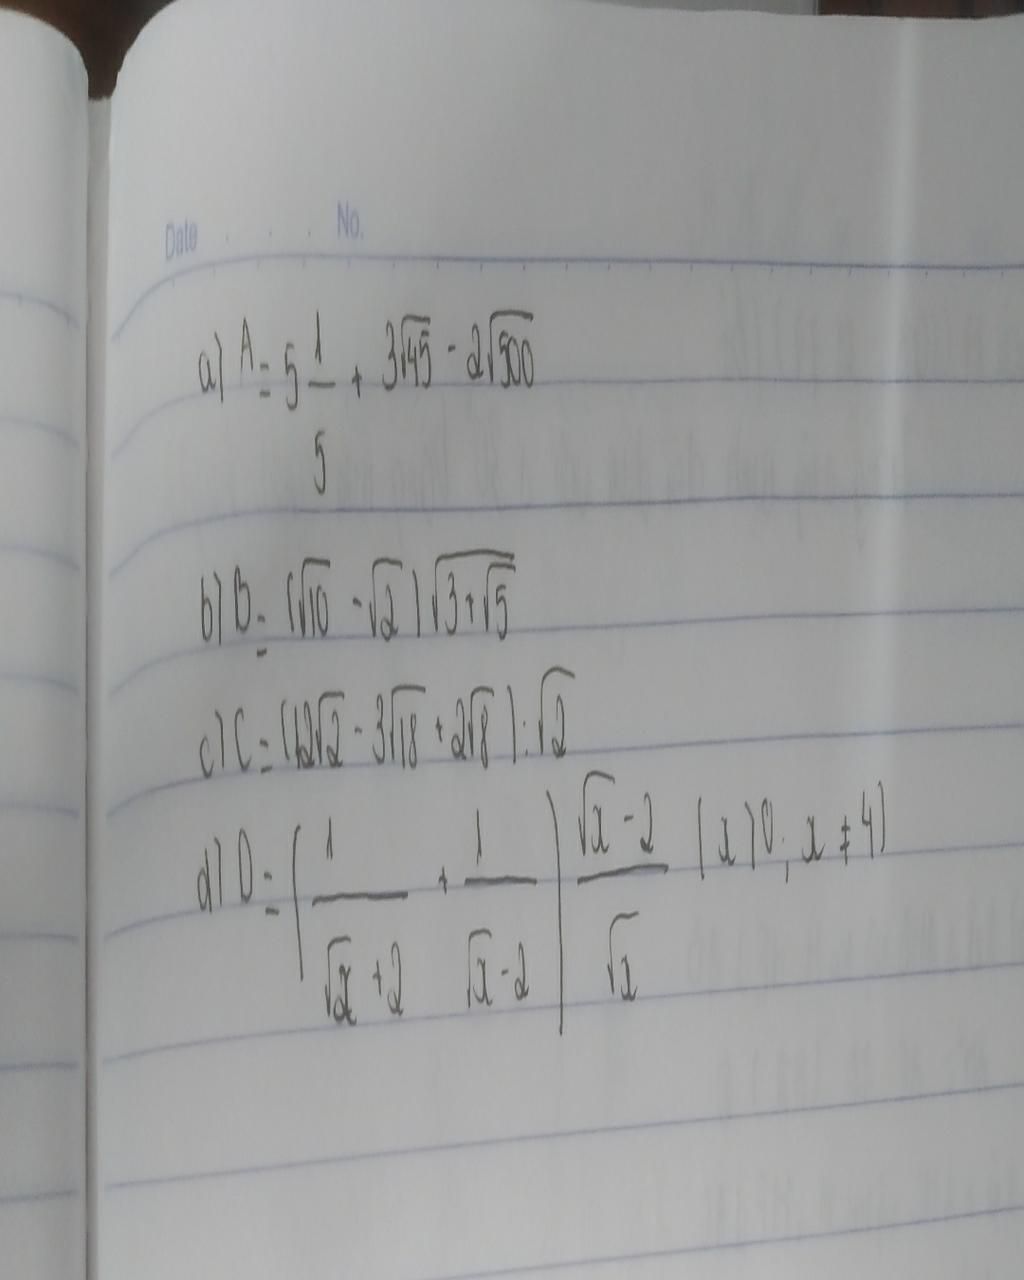 Date . . . No.
a) A = 5 1/5 + 3√45 - 2√500
b) B = (√10 - √2) √(3+√5)
c) C = (12√2 - 3√18 + 2√8) : √2
d) D = (1/(√x + 2) + 1/(√x - 2)) (√x - 2)/√x (x > 0; x ≠ 4)